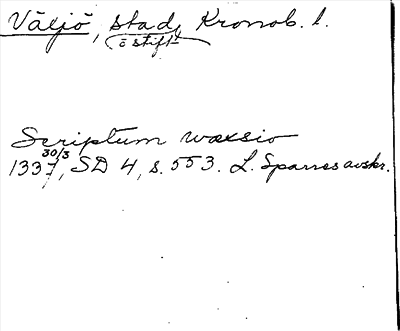 Växjö, stad, Kronob. l.
o stift
Scriptum wæxsio
30/3
1337, SD 4, s. 553. L. Sparres avskr.